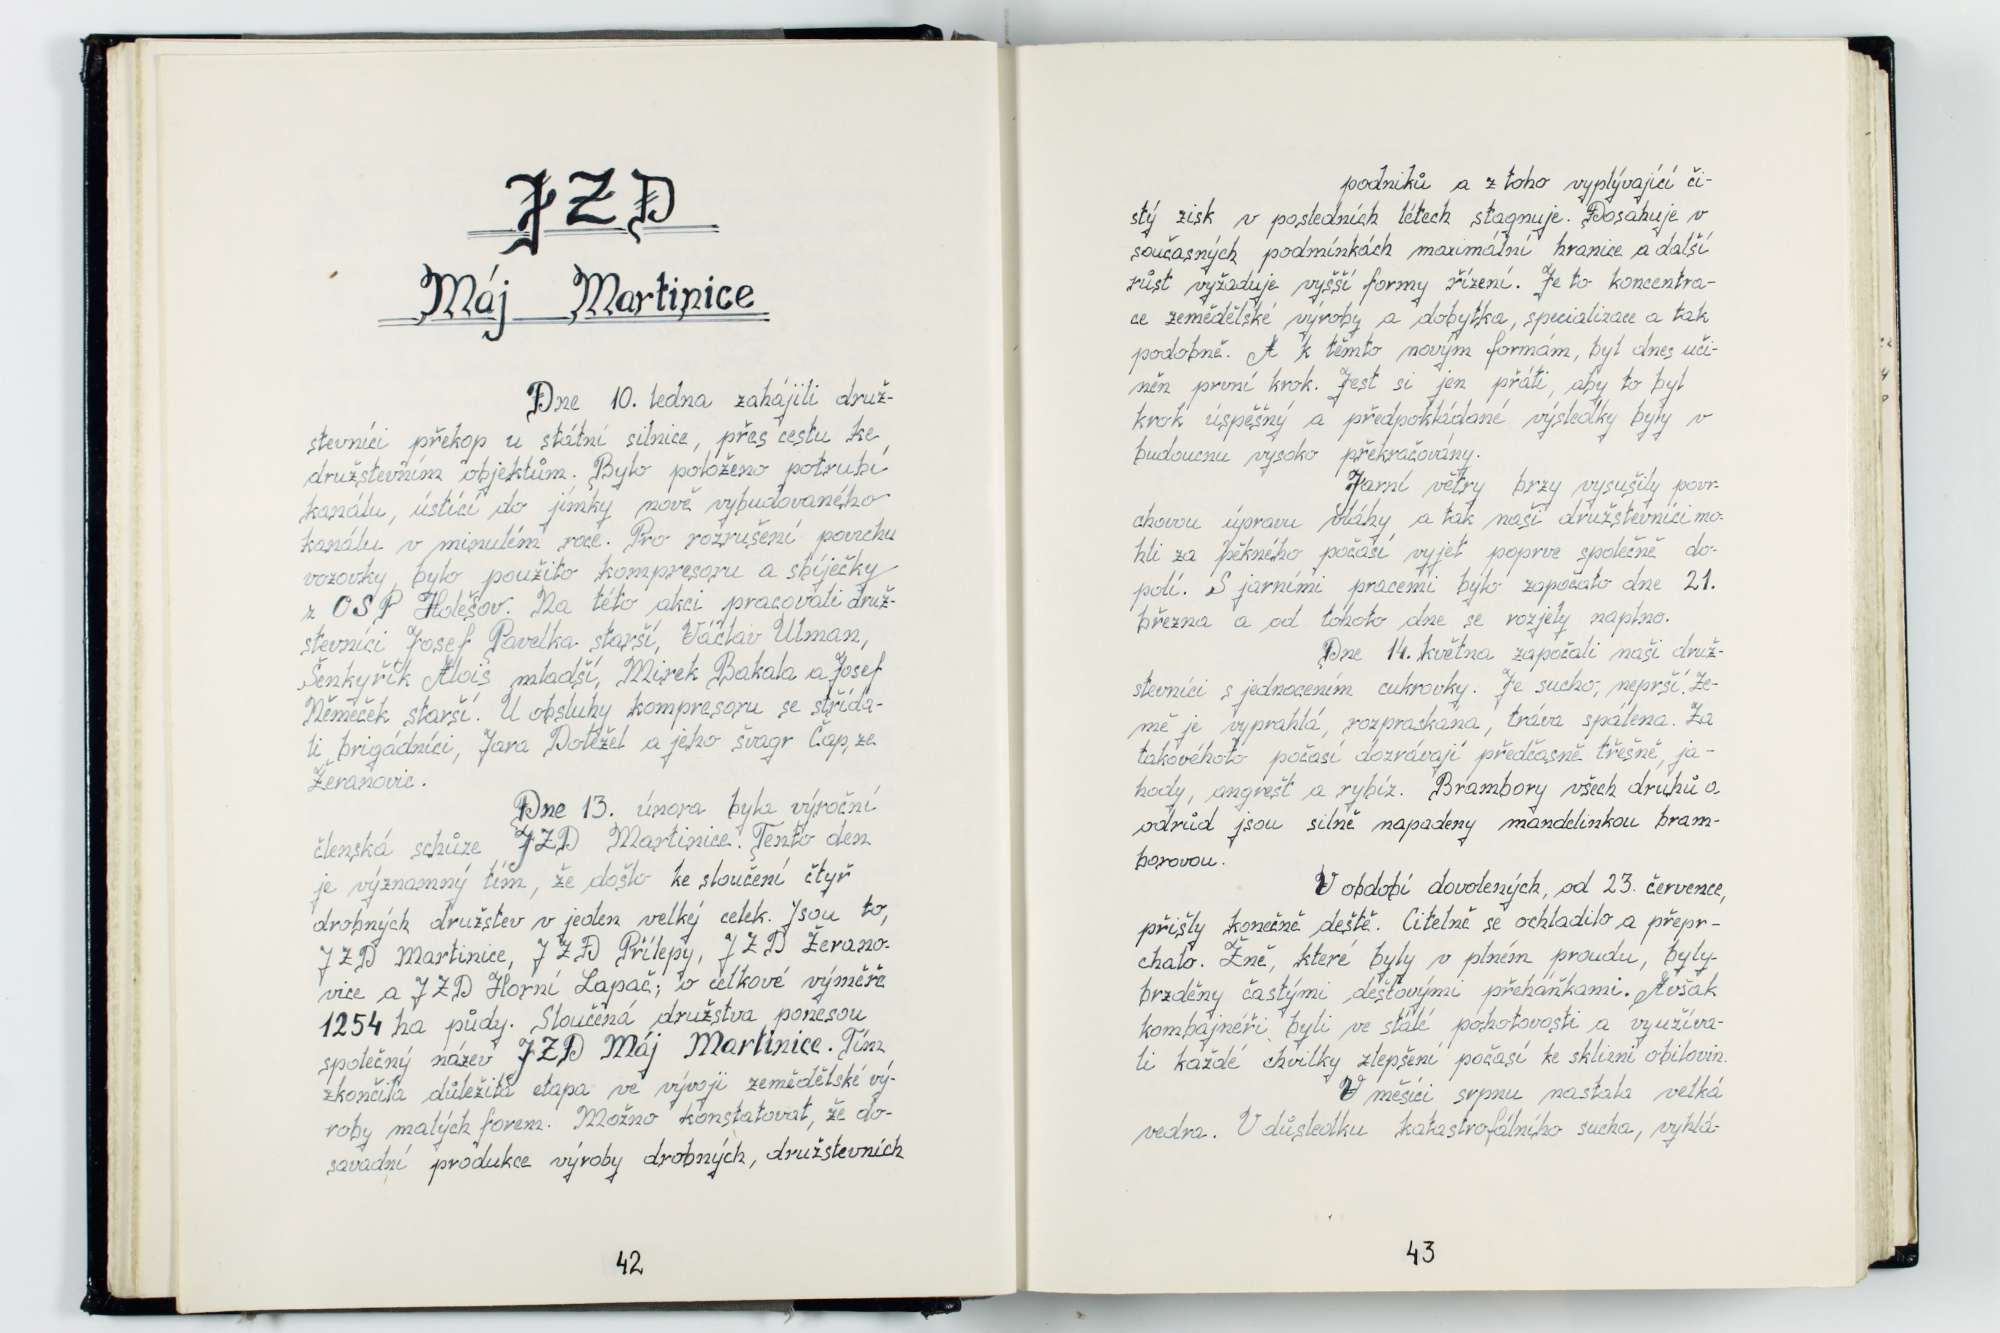 JZD
Máj Martinice
Dne 10. ledna zahájili druž-
stevníci překop u státní silnice, přes cestu ke
družstevním objektům. Bylo položeno potrubí
kanálu, ústící do jímky nově vybudovaného
kanálu v minulém roce. Pro rozrušení povrchu
vozovky, bylo použito kompresoru a sbíječky
z OSP Holešov. Na této akci pracovali druž-
stevníci Josef Pavelka starší, Václav Ulman,
Šenkyřík Alois mladší, Mirek Bakala a Josef
Němeček starší. U obsluhy kompresoru se střída-
li brigádníci, Jara Doležel a jeho švagr Čap, ze
Žeranovic.
Dne 13. února byla výroční
členská schůze JZD Martinice. Tento den
je významný tím, že došlo ke sloučení čtyř
drobných družstev v jeden velký celek. Jsou to,
JZD Martinice, JZD Přílepy, JZD Žerano-
vice a JZD Horní Lapač; o celkové výměře
1254 ha půdy. Sloučená družstva ponesou
společný název JZD Máj Martinice. Tím
zkončila důležitá etapa ve vývoji zemědělské vý-
roby malých forem. Možno konstatovat, že do-
savadní produkce výroby drobných, družstevních
42
podniků a z toho vyplývající či-
stý zisk v posledních létech stagnuje. Dosahuje v
současných podmínkách maximální hranice a další
růst vyžaduje vyšší formy řízení. Je to koncentra-
ce zemědělské výroby a dobytka, specializace a tak
podobně. A k těmto novým formám, byl dnes uči-
něn první krok. Jest si jen přáti, aby to byl
krok úspěšný a předpokládané výsledky byly v
budoucnu vysoko překračovány.
Jarní větry brzy vysušily povr-
chovou úpravu vláhy a tak naši družstevníci mo-
hli za pěkného počasí vyjet poprve společně do-
polí. S jarními pracemi bylo započato dne 21.
března a od tohoto dne se rozjely naplno.
Dne 14. května započali naši druž-
stevníci s jednocením cukrovky. Je sucho, neprší. Ze-
mě je vyprahlá, rozpraskána, tráva spálena. Za
takovéhoto počasí dozrávají předčasně třešně, ja-
hody, angrešt a rybíz. Brambory všech druhů a
odrůd jsou silně napadeny mandelinkou bram-
borovou.
V období dovolených, od 23. července,
přišly konečně deště. Citelně se ochladilo a přepr-
chalo. Žně, které byly v plném proudu, byly
brzděny častými dešťovými přeháňkami. Avšak
kombajnéři byli ve stálé pohotovosti a využíva-
li každé chvilky zlepšení počasí ke sklizni obilovin.
V měsíci srpnu nastala velká
vedra. V důsledku katastrofálního sucha, vyhlá-
43